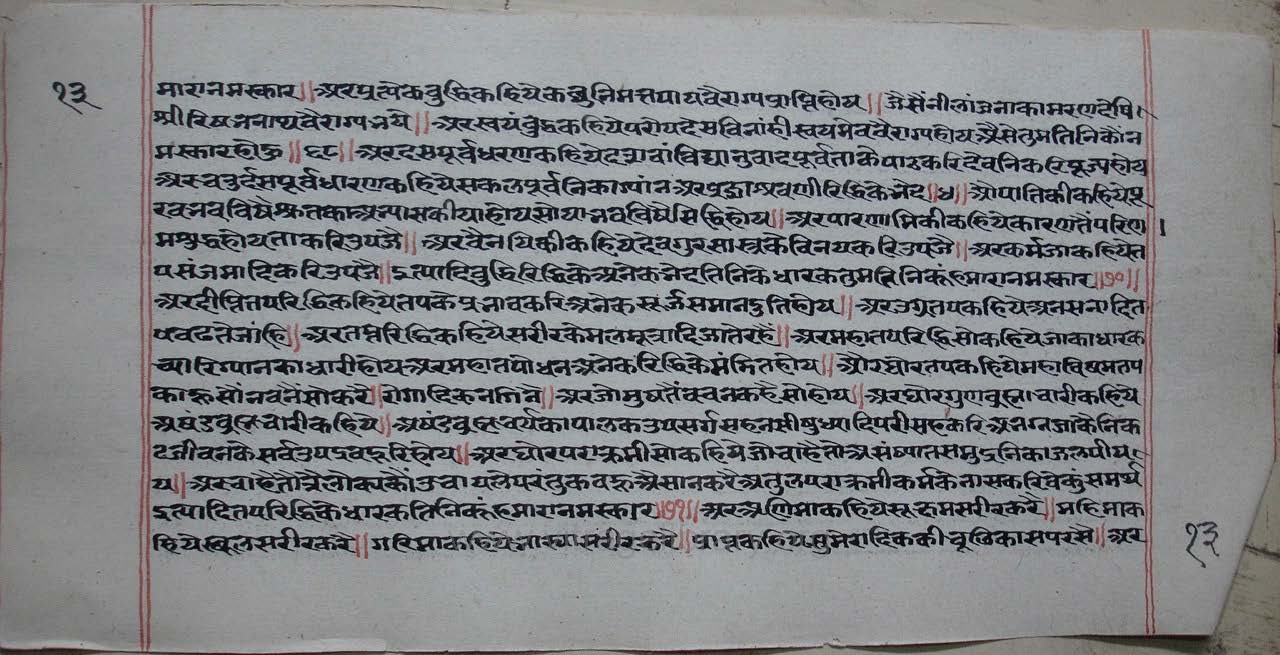 १३
मारा नमस्कार॥ अर प्रत्येक बुद्धि कहिये कछु निमत्त पाय वैराग्य प्राप्ति होय॥ जैसैं नीलांजना का मरण देषि
श्री रिषभनाथ वैराग्य भये॥ अर स्वयंबुद्ध कहिये परोपदेस विनां ही स्वयमेव वैराग्य होय अैसे तुम तिनिकौं न
मस्कार होऊ॥६८॥ अर दसपूर्वधरण कहिये दशवां विद्यानुवाद पूर्व ताके पाठ करि देवनि करि पूज्य होय
अर चतुर्दसपूर्वधारण कहिये सकल पूर्वनि का ग्यांन अर प्रज्ञाश्रवणी रिद्धि के भेद॥४॥ औपातिकी कहिये पू
रव भव विषै श्रुत का अभ्यास कीया होय सो या भव विषै सिद्धि होय॥ अर पारणामिकी कहिये कारण तैं परिण
म शुद्ध होय ता करि उपजै॥ अर वैनयिकी कहिये देव गुर सास्त्र के विनय करि उपजै॥ अर कर्मजा कहिये त
प संजमादि करि उपजै॥ इत्यादि बुद्धि रिद्धि के अनेक भेद तिनिके धारक तुम तिनिकूं हमारा नमस्कार॥७०॥
अर दीप्ति तप रिद्धि कहिये तप के प्रभाव करि अनेक सूर्ज समान दुति होय॥ अर उग्र तप कहिये अनसनादि त
प वढते जांहि॥ अर तप्त रिद्धि कहिये सरीर के मल मूत्रादि जाते रहै॥ अर महा तप रिद्धि सो कहिये जाका धारक
च्यारि ग्यान का धारी होय अर महा तपोधन अनेक रिद्धि के मंडित होय॥ और घोर तप कहिये महा विषम तप
काहू सौं न वनैं सो करै॥ रोगादिक न गिनै॥ अर जो मुष तैं वचन कहै सो होय॥ अर घोरगुणब्रह्मचारी कहिये
अषंड ब्रह्मचारी कहिये॥ अषंड ब्रह्मचर्य का पालक उपसर्ग सहन सी षुध्यादि परीसह करि अभग्न जाकै निक
ट जीवन के सर्व उपद्रव दूरि होय॥ अर घोर पराक्रमी सो कहिये जो चाहै तो असंष्यात समुद्रनि का जल पीय
य॥ अर चाहै तौ त्रैलोक्य कौं उचाय ले परंतु कबहू अैसा न करै अतुल पराक्रमी कर्म के नास करिवेकुं समर्थ
इत्यादि तप रिद्धि के धारक तिनिकूं हमारा नमस्कार॥७१॥ अर अणिमा कहिये सूक्ष्म सरीर करै॥ महिमा क
हिये स्थूल सरीर करै॥ गरिमा कहिये भास्या सरीर करै॥ प्राप्त कहिये सुमेरादिक की चूलिका सपरसै॥ अर
१३